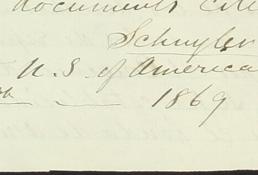 documents cite
Schuyler
U.S. of America
th — 1869